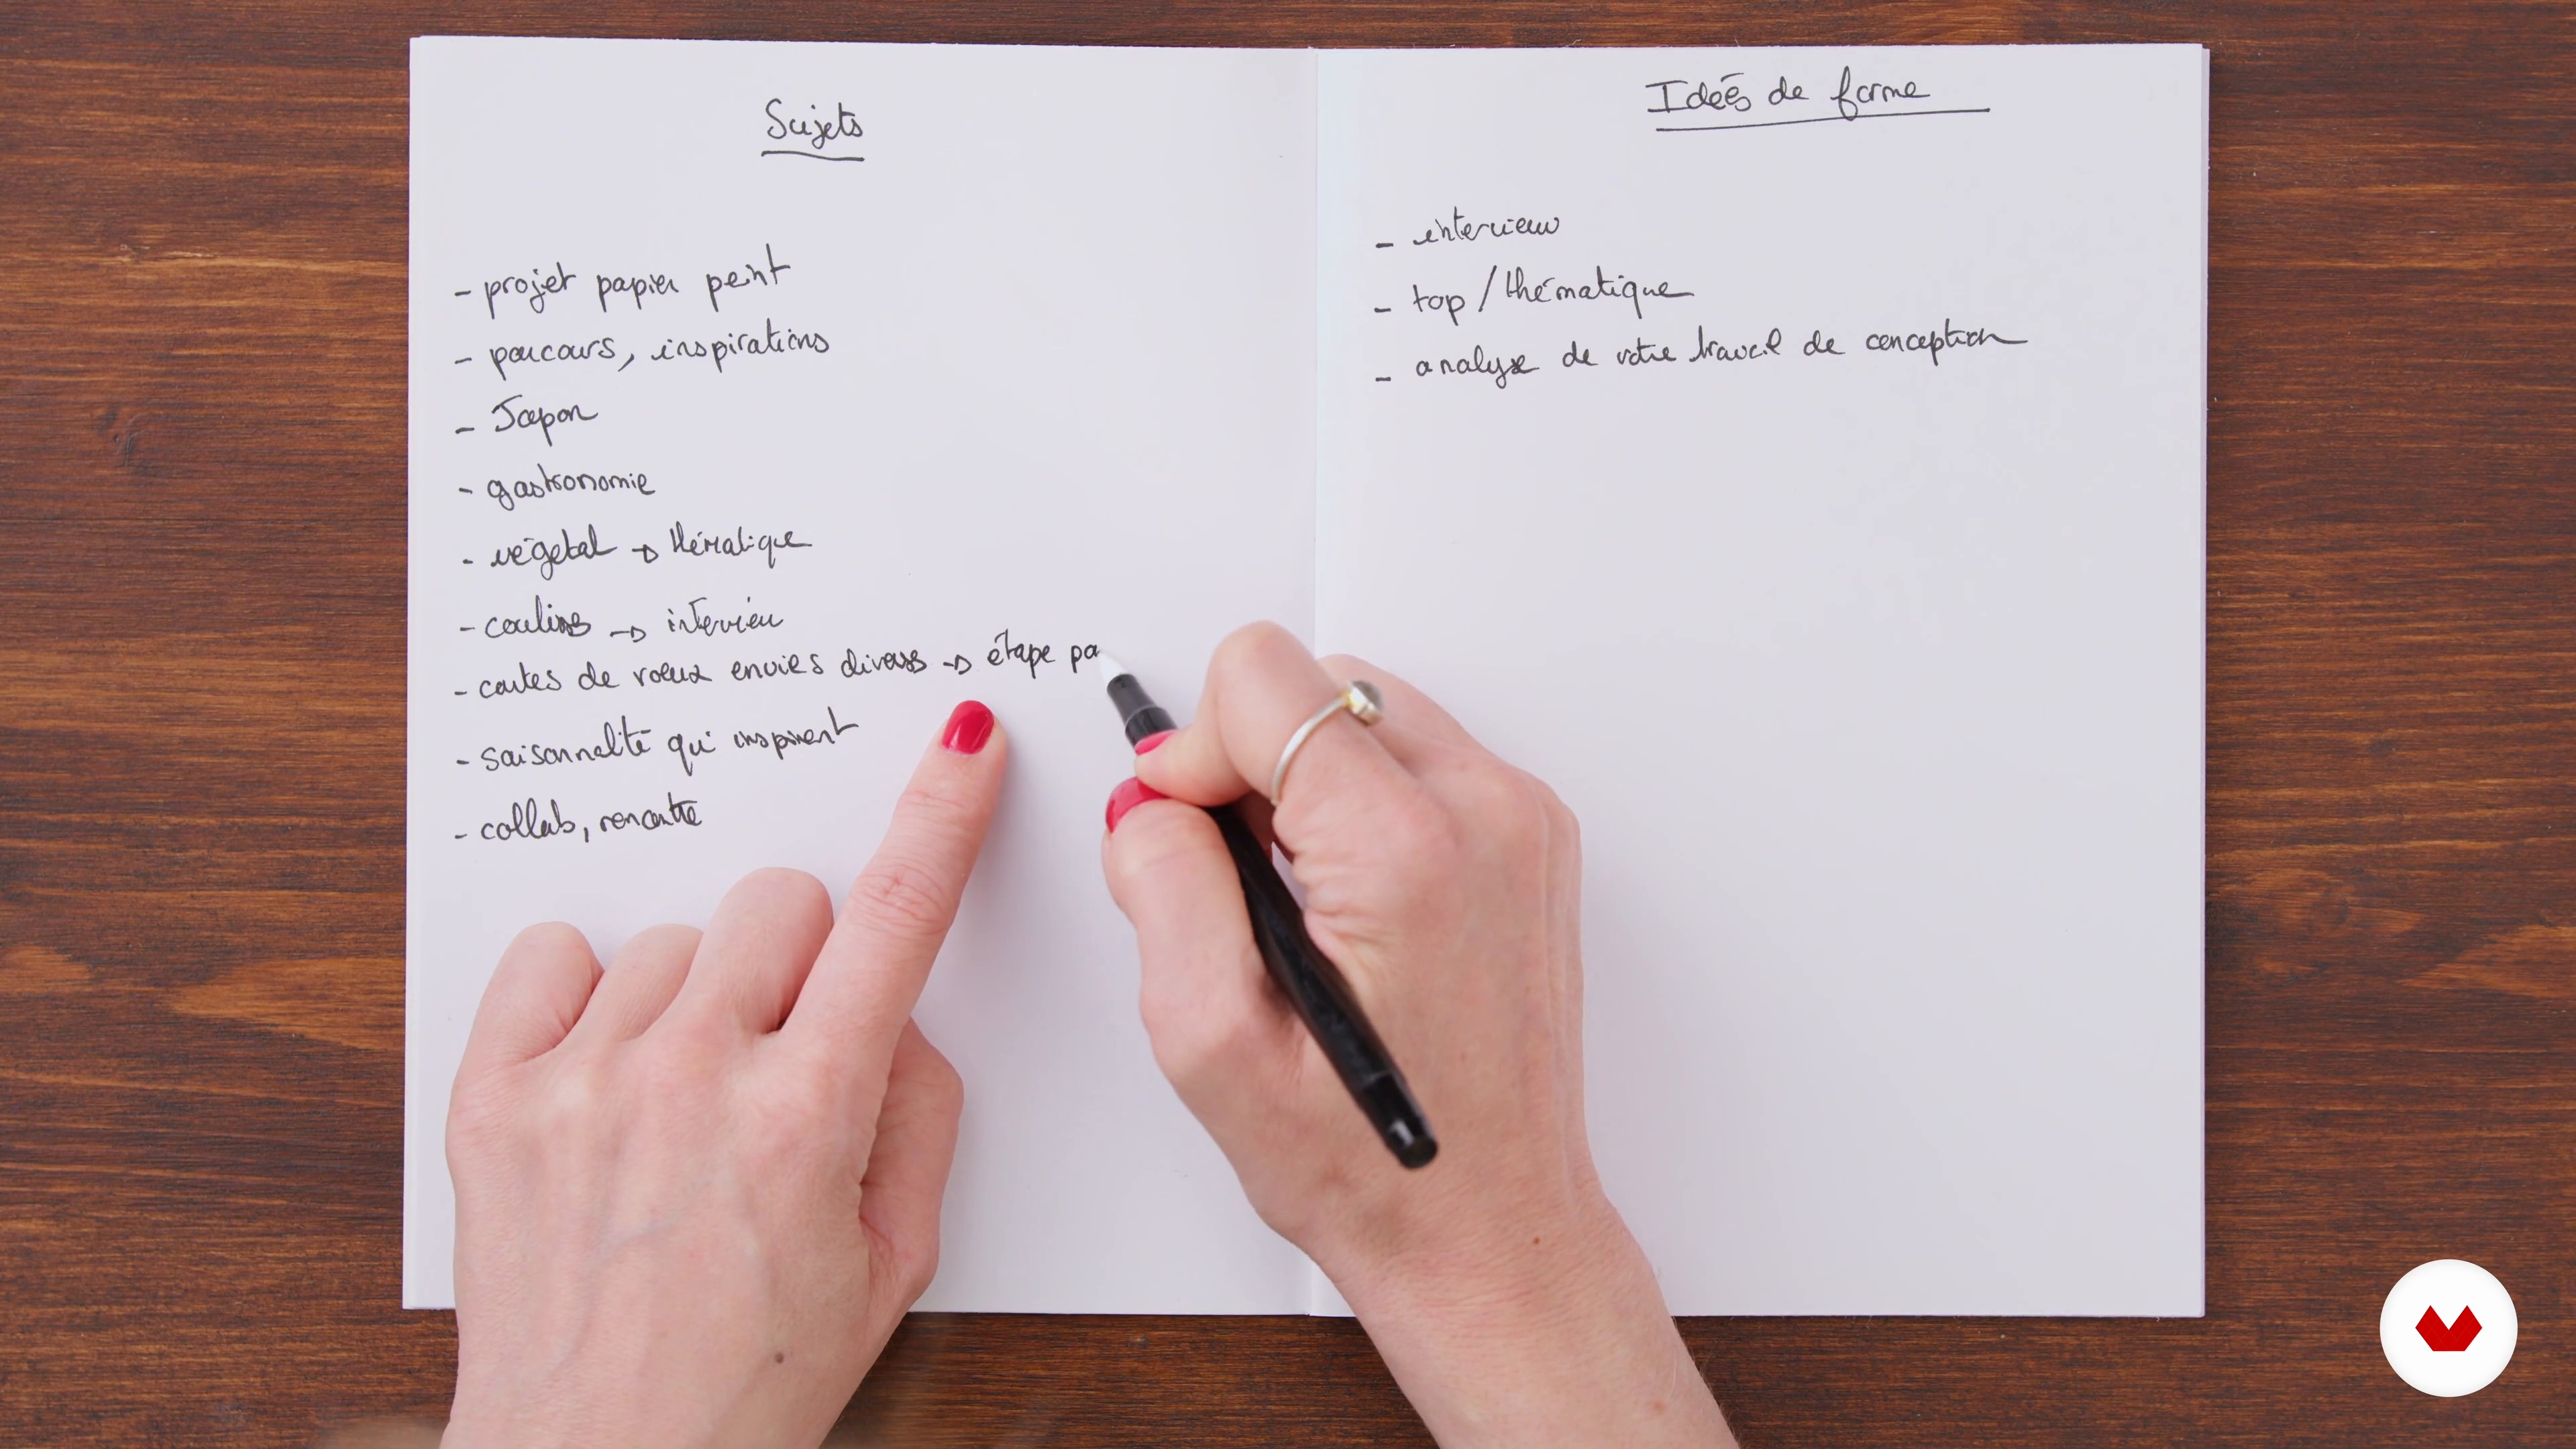 Sujets
- projet papier peint
- parcours, inspirations
- Japon
- gastronomie
- végétal → thématique
- coulisses → interview
- cartes de voeux envies divers → étape pa
- saisonnalité qui inspirent
- collab, rencontre
Idées de forme
- interview
- top / thématique
- analyse de votre travail de conception